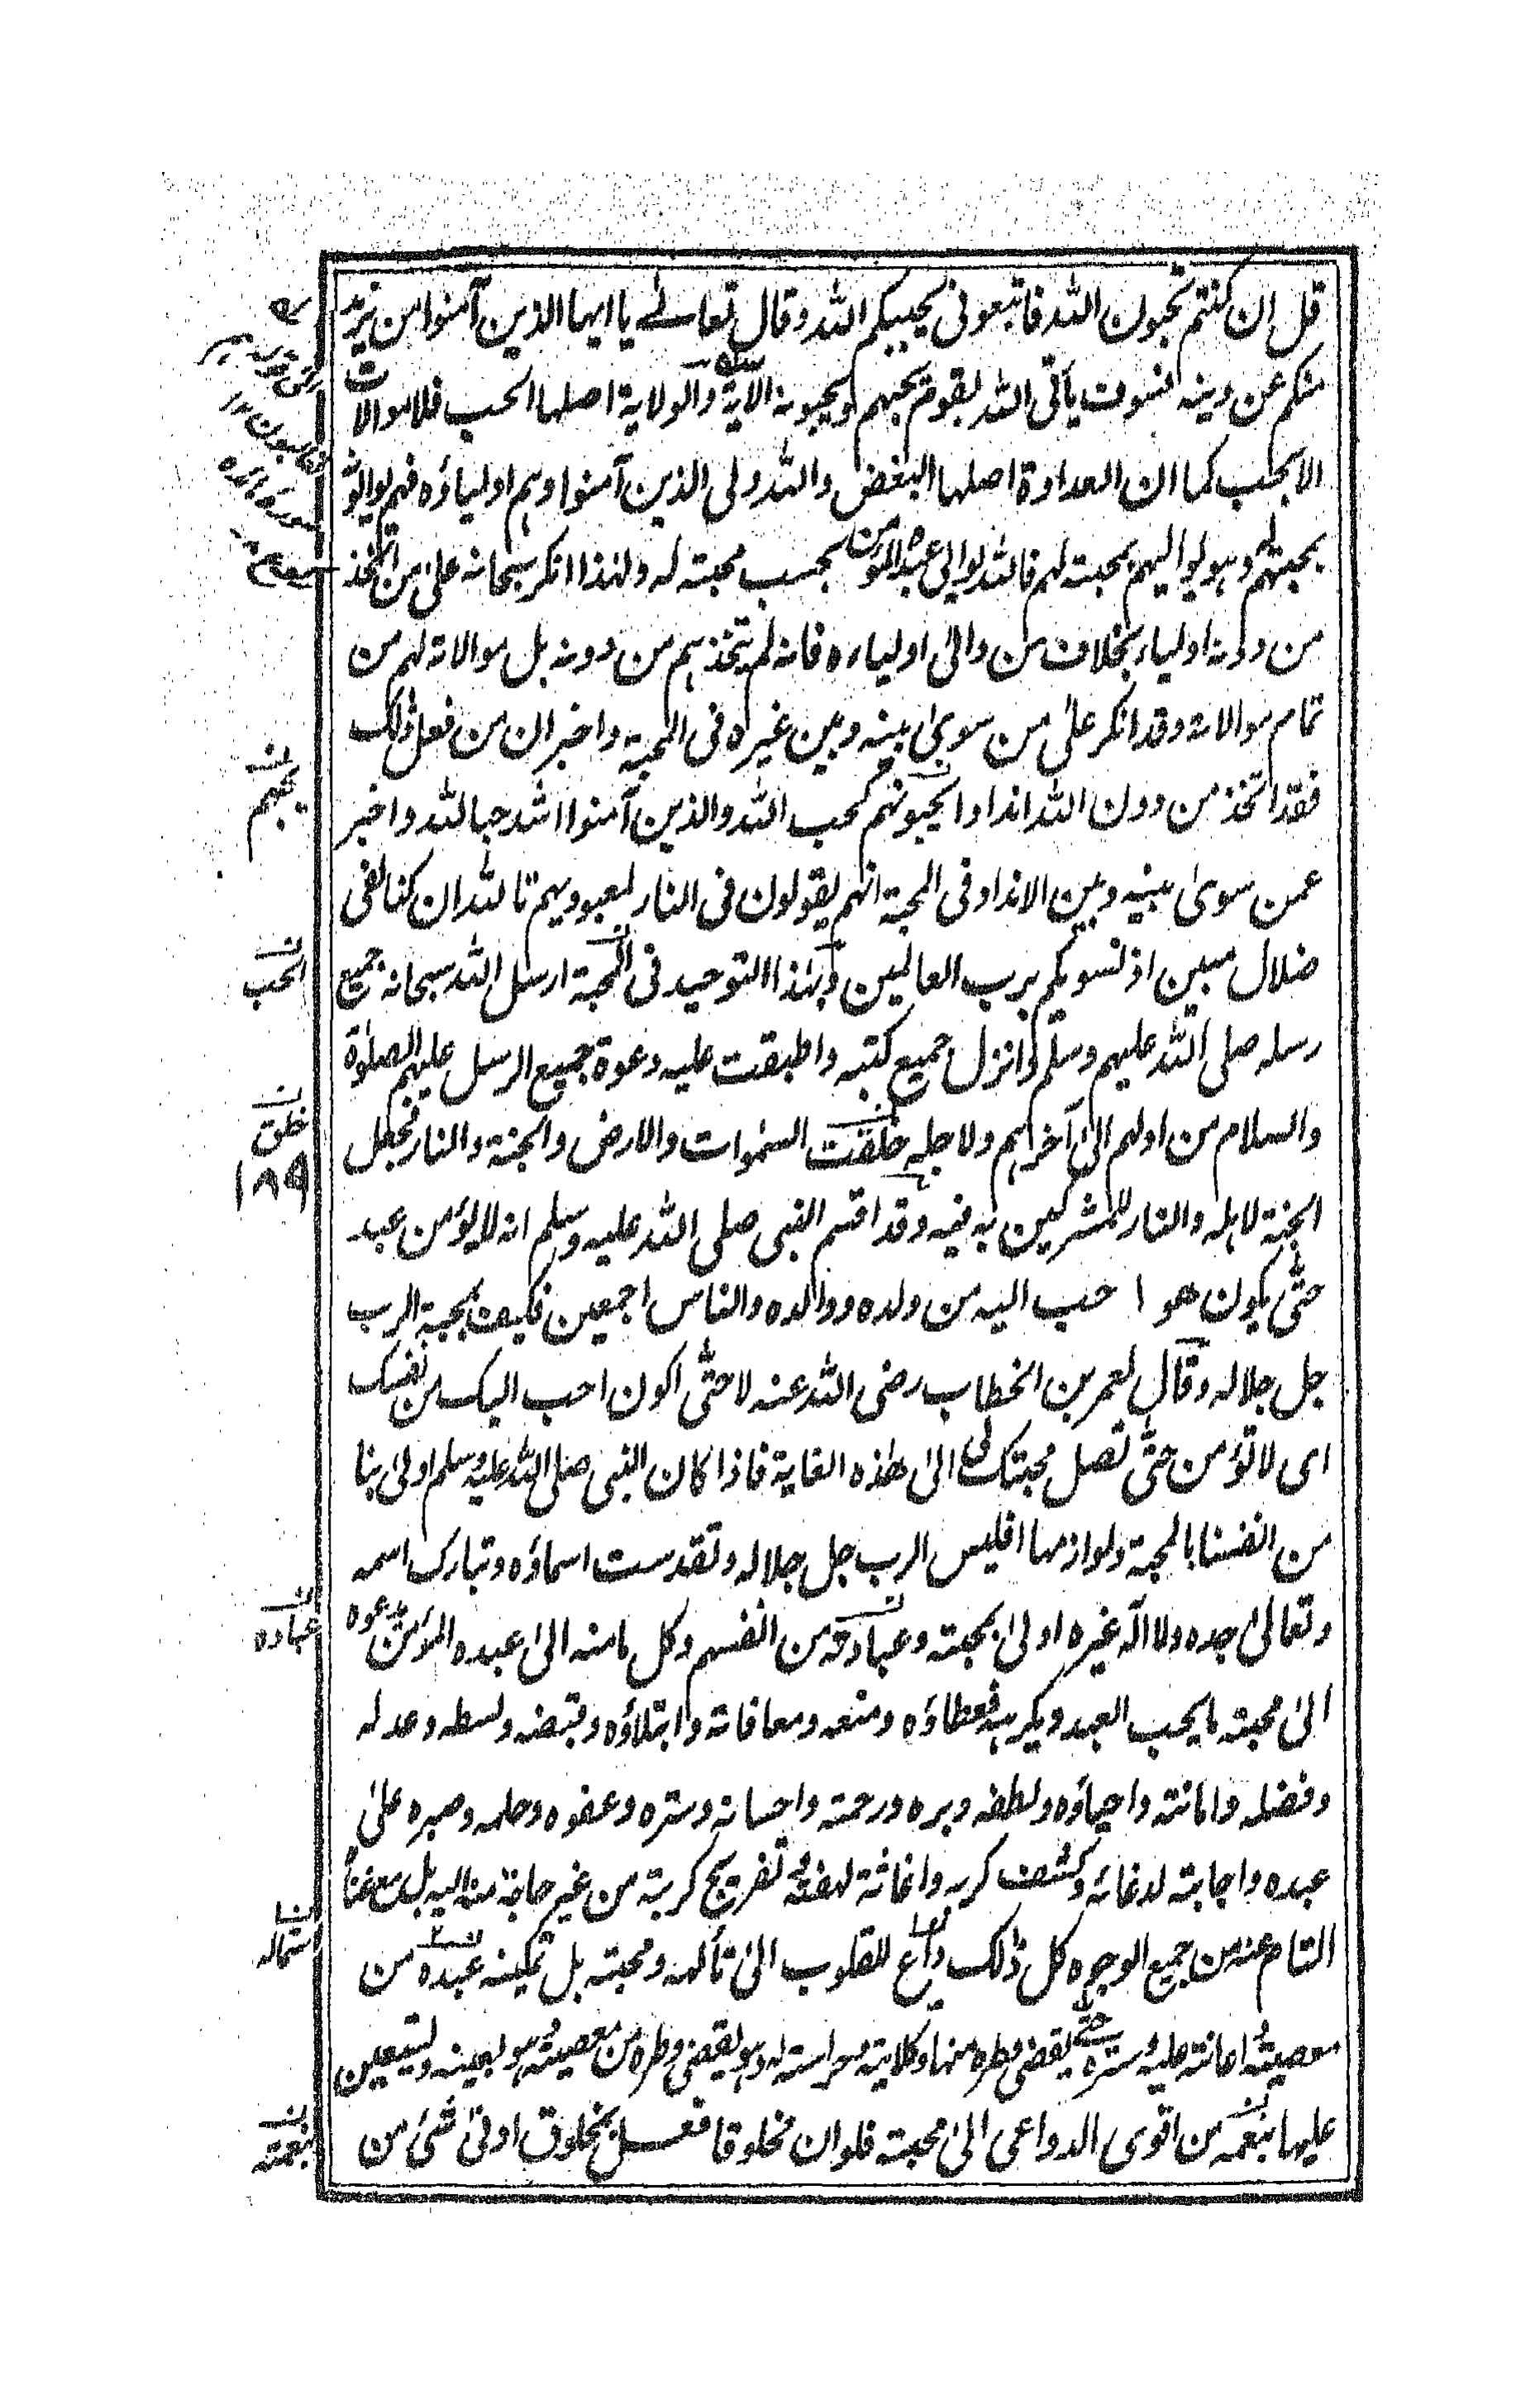 قل ان كنتم تحبون الله فاتبعونى يحببكم الله وقال تعالے يا ايها الذين آمنوا من يرتد
منكم عن دينه فسوف يأتى الله بقوم يحبهم ويحبونه الآية والولاية اصلها الحب فلا موالات
الا بحب كما ان العداوة اصلها البغض والله ولى الذين آمنوا وهم اولياؤه فهم يوالونه
بمحبتهم له وهو يواليهم بمحبته لهم فالله يوالى عبده المؤمن بحسب محبته له ولهذا انكر سبحانه على من اتخذ
من دونه اولياء بخلاف من والى اولياءه فانه لم يتخذهم من دونه بل موالاته لهم من
تمام موالاته وقد انكر على من سوى بينه وبين غيره فى المحبة واخبر ان من فعل ذلك
فقد اتخذ من دون الله اندادا يحبونهم كحب الله والذين آمنوا اشد حبا لله واخبر
عمن سوى بينه وبين الانداد فى المحبة انهم يقولون فى النار لمعبوديهم تالله ان كنا لفى
ضلال مبين اذ نسويكم برب العالمين وبهذا التوحيد فى المحبة ارسل الله سبحانه جميع
رسله صلى الله عليهم وسلم وانزل جميع كتبه واطبقت عليه دعوة جميع الرسل عليهم الصلوٰة
والسلام من اولهم الى آخرهم ولاجله خلقت السموات والارض والجنة والنار فجعل
الجنة لاهله والنار للمشركين به فيه وقد اقسم النبى صلى الله عليه وسلم انه لا يؤمن عبد
حتى يكون هو احب اليه من ولده ووالده والناس اجمعين فكيف بمحبة الرب
جل جلاله وقال لعمر بن الخطاب رضى الله عنه لا حتى اكون احب اليك من نفسك
اى لا تؤمن حتى تصل محبتك لى الى هذه الغاية فاذا كان النبى صلى الله عليه وسلم اولى بنا
من انفسنا بالمحبة ولوازمها افليس الرب جل جلاله وتقدست اسماؤه وتبارك اسمه
وتعالى جده ولا اله غيره اولى بمحبته وعبادته من انفسهم وكل ما منه الى عبده المؤمن يدعوه
الى محبته ما يحب العبد ويكرهه فعطاؤه ومنعه ومعافاته وابتلاؤه وقبضه وبسطه وعدله
وفضله واماتته واحياؤه ولطفه وبره ورحمته واحسانه وستره وعفوه وحلمه وصبره على
عبده واجابته لدعائه وكشف كربه واغاثة لهفته تفريج كربته من غير حاجة منه اليه بل مع غناه
التام عنه من جميع الوجوه كل ذلك داع للقلوب الى تألهه ومحبته بل تمكينه عبده من
معصيته اعانته عليه وستره حتى يقضى وطره منها وكلايته وحراسته له وهو يقضى وطره من معصيته هو يعينه ويستعين
عليها بنعمه من اقوى الدواعى الى محبته فلو ان مخلوقا فعل بمخلوق ادنى شئ من
يحبهم
الحب
خلق
١٨٩
عباده
نعمته